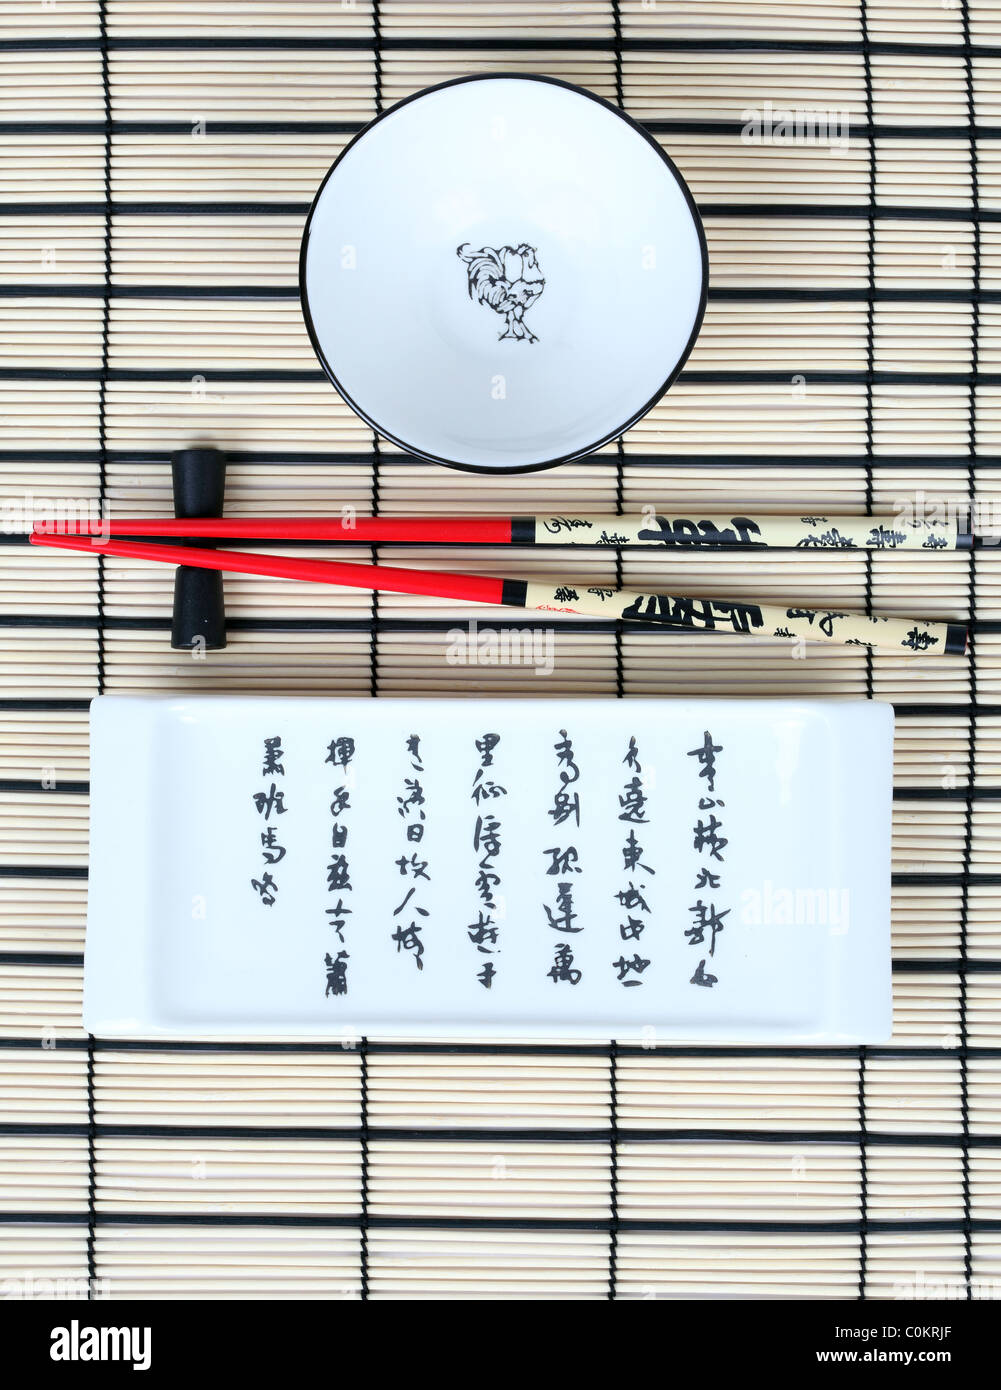 壽
青山橫北郭白
水遶東城此地一
為別孤蓬萬
里征浮雲遊子
意落日故人情
揮手自茲去蕭
蕭班馬鳴
alamy
a
alamy
Image ID: C0KRJF
www.alamy.com